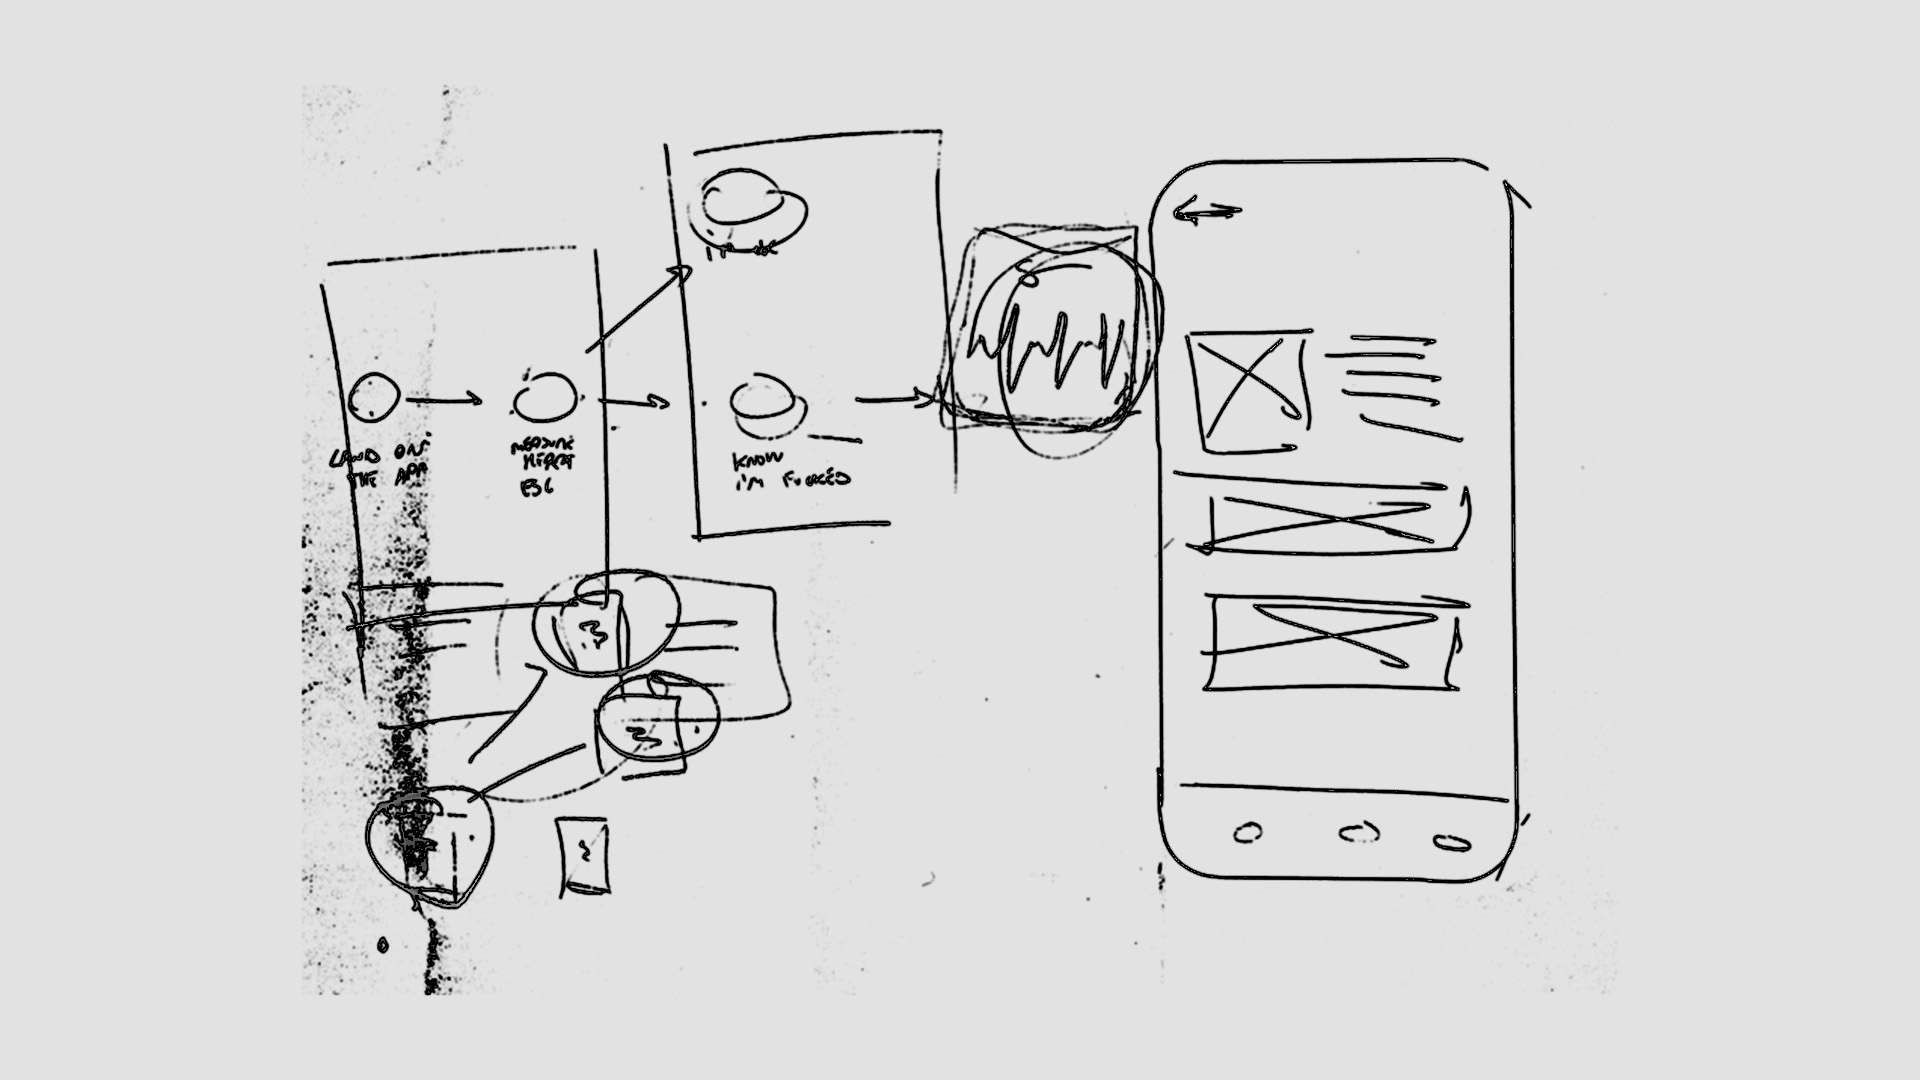 LAND ON
THE APP
MEASURE
HEART
KNOW
I'M FUCKED